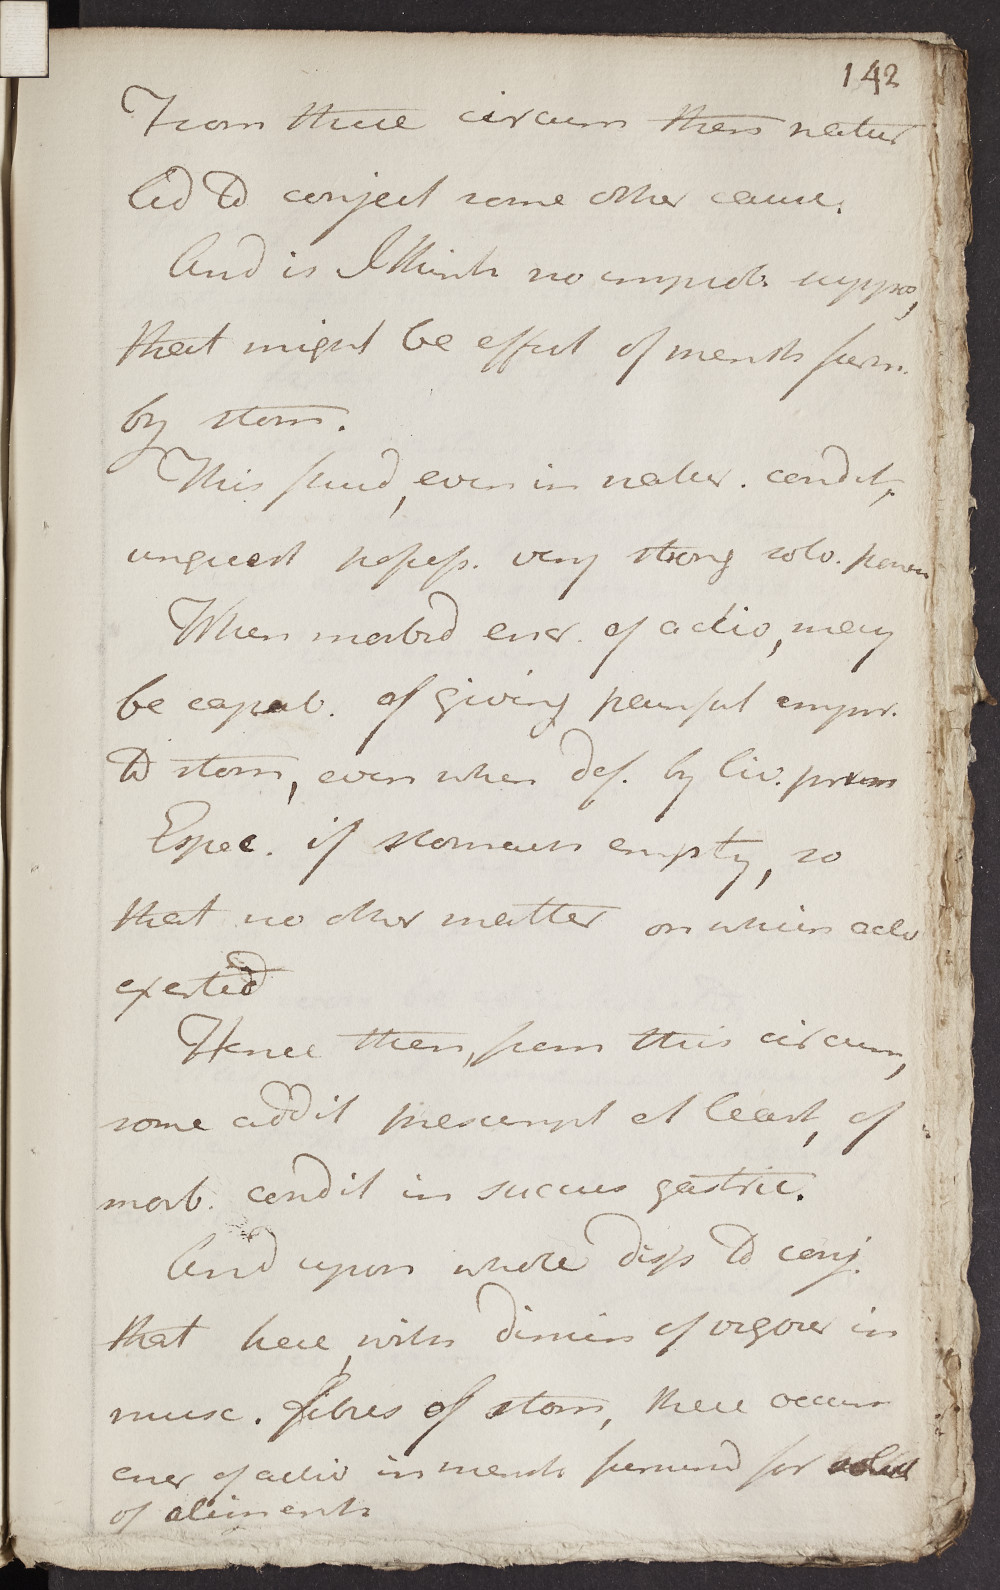 142
From these circum then natur
led to conject some other cause.
And is I think no improb. suppos,
that might be effect of menst furn.
by stom.
This fluid, even in natur. condit,
unquest possess. very strong solv. power
When morbid encr. of activ, may
be capab. of giving painful impr.
to stom, even when def. by liv. princ
Espec. if stomach empty, so
that no other matter on which activ
exerted
Hence then, from this circum,
some addit presumpt at least, of
morb. condit in succus gastric.
And upon whole disp to conj.
that here, with dimin of vigour in
musc. fibres of stom, there occurs
encr of activ in menst furnis'd for
of aliments